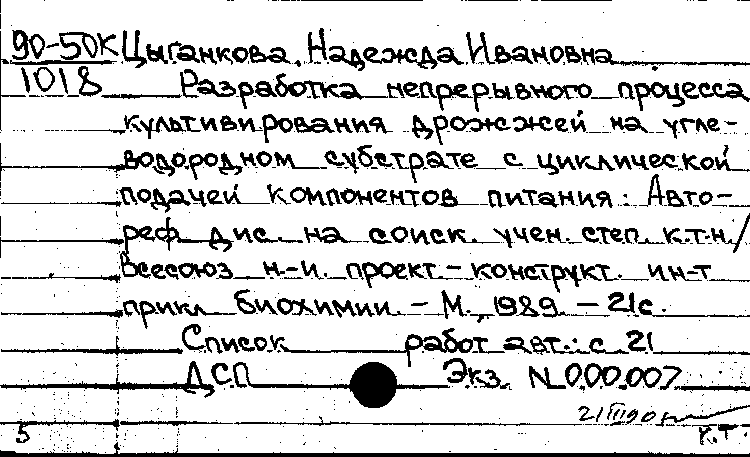 90-50К Цыганкова, Надежда Ивановна
1018 Разработка непрерывного процесса
культивирования дрожжей на угле-
водородном субстрате с циклической
подачей компонентов питания: Авто-
реф. дис. на соиск. учен. степ. к.т.н./
Всесоюз н-и. проект-конструкт. ин-т
прикл биохимии. - М., 1989. - 21с.
Список работ авт.: с. 21
ДСП Экз. N 000.007
21/III90г
5 К.Т.